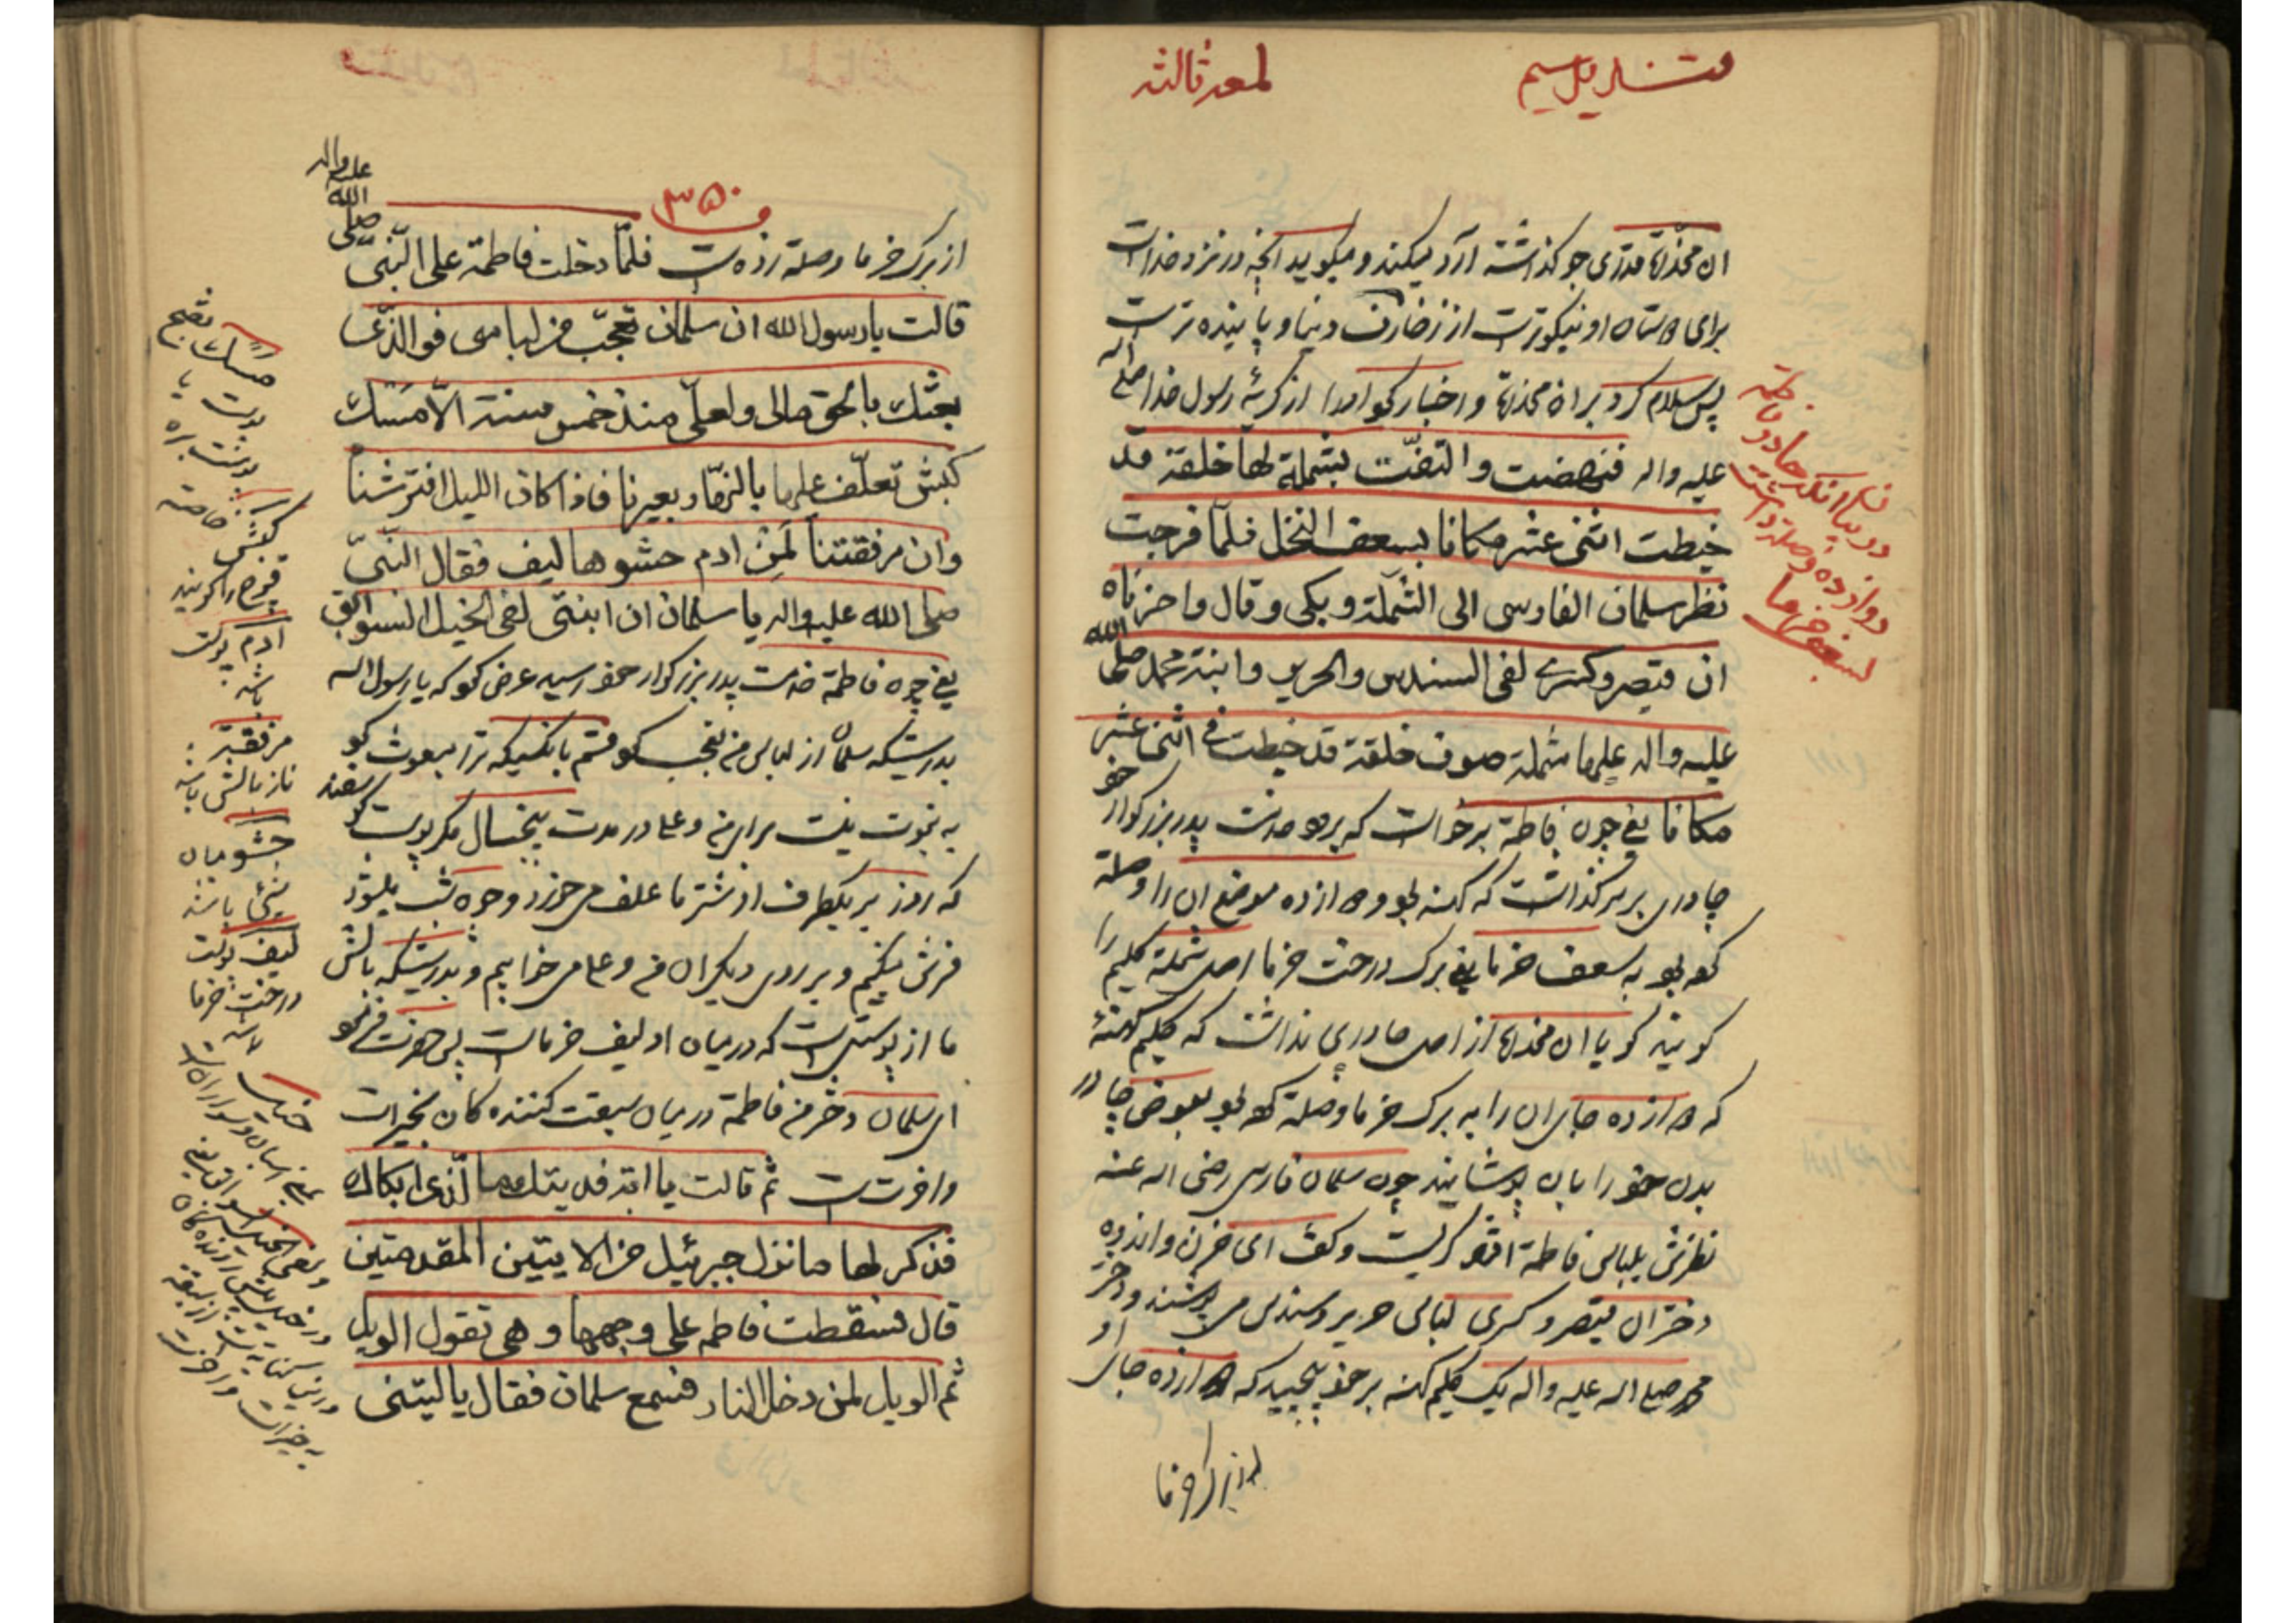 لمعه ثالثه
ان مخدّره قدری جو كذاشته آرد ميكند و ميكويد انچه در نزد خداست
برای دوستان او نيكوترست از زخارف دنيا و پاينده ترست
پس سلام كرد بر ان مخدره و اخبار كرد او را از كريهٔ رسول خدا صلی الله
عليه واله فنهضت والتفّت بشملة لها خلقة قد
خيطت اثنی عشر مكانا بسعف النخل فلمّا خرجت
نظر سلمان الفارسی الی الشملة و بكی و قال واحزناه
ان قيصر و كسری لفی السندس والحرير وابنة محمد صلی الله
عليه واله عليها شملة صوف خلقة قد خيطت فی اثنی عشر
مكانا يعنی چون فاطمة برخواست كه برود خدمت پدر بزركوار خود
چادری بر سر كذاشت كه كهنه بود و دوازده موضع ان را وصلة
كرده بود به سعف خرما يعنی برك درخت خرما اصل شملة كليم را
كويند كويا ان مخدره از اصل چادری نداشت كه كليم كهنهٔ
كه دوازده جای ان را به برك خرما وصلة كرده بود بعوض چادر
بدن خود را بان پوشانيد چون سلمان فارسی رضی الله عنه
نظرش بلباس فاطمة افتاد كريست و كفت ای حزن و اندوه
دختران قيصر و كسری لباس حرير و سندس می پوشند و دختر
محمد صلی الله عليه واله يك كليم كهنه بر خود پيچيد كه دوازده جای او
از برك خرما
دوازده وصلة داشت
بسعف خرما
۳۵۰
از برك خرما وصلة زده ست فلمّا دخلت فاطمة علی النّبیّ صلی الله عليه واله
قالت يا رسول الله ان سلمان تعجّب من لباسی فوالذّی
بعثك بالحق مالی ولعلیّ منذ خمس سنة الّا مسك
كبش تعلّف عليها بالنهار بعيرنا فاذا كان الليل افترشنا
وان مرفقتنا لمن ادم حشوها ليف فقال النبیّ
صلی الله عليه واله يا سلمان ان ابنتی لفی الخيل السوابق
يعنی چون فاطمة خدمت پدر بزركوار خود رسيد عرض كرد كه يا رسول الله
بدرستيكه سلمان از لباس من تعجب كرد قسم بانكسيكه ترا مبعوث كرد
به نبوت نيست برای من و علی در مدت پنجسال مكر پوست كوسفند
كه روز بر يكطرف او شتر ما علف می خورد و چون شب ميشود
فرش ميكنيم و بر روی ديكر ان من و علی می خوابيم و بدرستيكه بالش
ما از پوستی است كه در ميان او ليف خرماست پس حضرت فرمود
ای سلمان دختر من فاطمة در ميان سبقت كننده كان بخيرات
و اخرت ست ثم قالت يا ابة فديتك ما الّذی ابكاك
فذكر لها ما نزل جبرئيل من الايتين المقدمتين
قال فسقطت فاطمه علی وجهها و هی تقول الويل
ثم الويل لمن دخل النار فسمع سلمان فقال يا ليتنی
مسك بفتح
پوست يا
پوست بره
كبش خاصة
قوچ را كويند
ادم پوست
باشد
مرفقة
ناز بالش باشد
حشو ميان
شیئ باشد
ليف پوست
درخت خرما
باشد